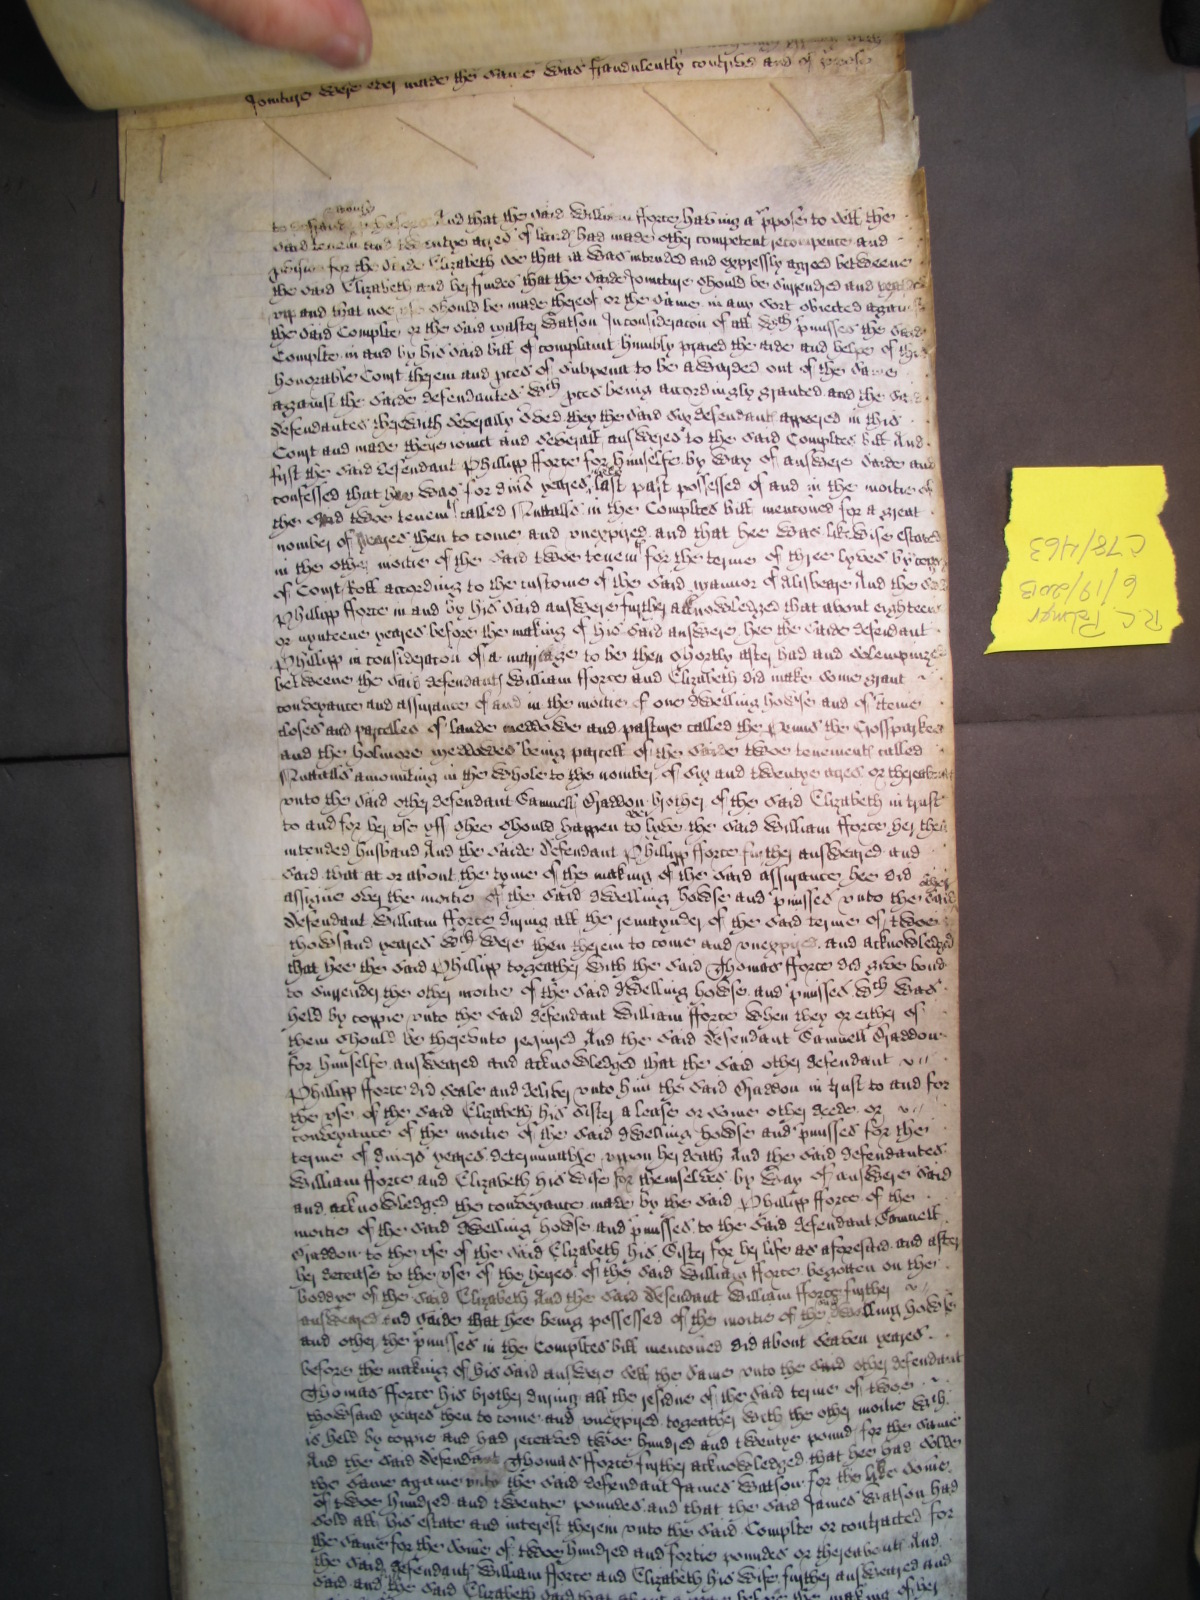 Joincture were ever made the same was fraudulently contrived and of purpose
to defraud And that the said William fforce having a ppose to sell the
said tenemt and twentye acres of land had made other competent recompence and
pvision for the saide Elizabeth soe that it was intended and expressly agreed betweene
the said Elizabeth and her frindes that the saide Joincture should be surrendred and
vpp and that noe vse should be made thereof or the same in any sort obiected against
the said Complte or the said master Watson In consideracon of all wch pmisses the said
Complte in and by his said bill of complaint humbly praied the aide and helpe of this
honorable Court therein and pces of Subpena to be awarded out of the same
against the saide defendantes wch pces being accordingly graunted and the said
defendantes therewith severally served they the said six defendants appered in this
Court and made their ioinct and severall answeres to the said Compltes bill And
first the said defendant Phillipp fforce for himselfe by way of answere saide and
confessed that hee was for divs yeares last past possessed of and in the moitie of
the said twoe tenemts called Nuttalls in the Compltes bill menconed for a great
number of yeares then to come and vnexpired and that hee was likewise estated
in the other moitie of the said twoe tenemts for the terme of three lyves by copy
of Court Roll according to the custome of the said mannor of Alisbeare And the said
Phillipp fforce in and by his said answere further acknowledged that about eighteene
or nynteene yeares before the making of his said answere hee the saide defendant
Phillipp in consideracon of a marriage to be then shortly after had and solempnized
betweene the said defendants William fforce and Elizabeth did make some graunt
conveyance and assurance of and in the moitie of one dwelling howse and of some
closes and parcelles of lande meddowe and pasture called the the Crosseparkes
and the holmore meddowes being parcell of the saide twoe tenements called
Nuttalls amounting in the whole to the number of six and twentye acres or thereabout
vnto the said other defendant Samuell Haddon brother of the said Elizabeth in trust
to and for her vse yff shee should happen to over lyve the said William fforce her then
intended husband And the saide defendant Phillipp fforce further answeared and
said that at or about the tyme of the making of the said assurance hee did
assigne over the moitie of the said dwelling howse and pmisses vnto the said other
defendant William fforce during all the remaynder of the said terme of twoe
thowsand yeares wch were then therein to come and vnexpired and acknowledged
that hee the said Phillipp togeather with the said Thomas fforce did give bond
to surrender the other moitie of the said dwelling howse and pmisses wch was
held by coppie vnto the said defendant William fforce when they or either of
them should be therevnto required And the said defendant Samuell Haddon
for himselfe answeared and acknowledged that the said other defendant
Phillipp fforce did seale and deliver vnto him the said Haddon in trust to and for
the vse of the said Elizabeth his sister a lease or some other deede or
conveyance of the moitie of the said dwelling howse and pmisses for the
terme of divers yeares determinable vppon her death And the said defendantes
William fforce and Elizabeth his wife for themselves by way of answere said
and acknowledged the conveyance made by the said Phillipp fforce of the
moitie of the said dwelling howse and pmisses to the said defendant Samuell
Haddon to the vse of the said Elizabeth his Sister for her life as aforesaid and after
her decease to the vse of the heyres of the said William fforce begotten on the
boddye of the said Elizabeth And the said defendant William fforce further
answeared and saide that hee being possessed of the moitie of the said dwelling howse
and other the pmisses in the Compltes bill menconed did about seaven yeares
before the making of his said answere sell the same vnto the said other defendant
Thomas fforce his brother during all the residue of the said terme of twoe
thowsand yeares then to come and vnexpired togeather with the other moitie wch
is held by coppie and had receaved twoe hundred and twentye pound for the same
And the said defendant Thomas fforce further acknowledged that hee had solde
the same againe vnto the said defendant James Watson for the like some
of twoe hundred and twentye poundes and that the said James Watson had
sold all his estate and interest therein vnto the said Complte or contracted for
the same for the some of twoe hundred and fortie poundes or thereabouts And
the said defendants William fforce and Elizabeth his wife further answeared and
said and the said Elizabeth said that before the making of her
R.C. Palmer
6/19/2013
C78/463